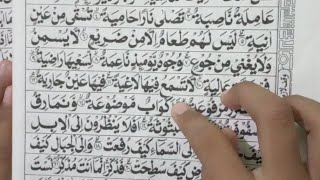 عَامِلَةٌ نَّاصِبَةٌ ۙ تَصْلٰى نَارًا حَامِيَةً ۙ تُسْقٰى مِنْ عَيْنٍ
اٰنِيَةٍ ۗ لَيْسَ لَهُمْ طَعَامٌ اِلَّا مِنْ ضَرِيْعٍ ۙ لَّا يُسْمِنُ
وَلَا يُغْنِيْ مِنْ جُوْعٍ ۗ وُجُوْهٌ يَّوْمَئِذٍ نَّاعِمَةٌ ۙ لِّسَعْيِهَا رَاضِيَةٌ ۙ
فِيْ عَالِيَةٍ ۙ لَّا تَسْمَعُ فِيْهَا لَاغِيَةً ۗ فِيْهَا عَيْنٌ جَارِيَةٌ ۘ
مَّرْفُوْعَةٌ ۙ مَّوْضُوْعَةٌ ۙ وَّنَمَارِقُ
مَبْثُوْثَةٌ ۗ اَفَلَا يَنْظُرُوْنَ اِلَى الْاِبِلِ
السَّمَآءِ كَيْفَ رُفِعَتْ ۪ وَاِلَى الْجِبَالِ كَيْفَ
كَيْفَ سُطِحَتْ ۪ فَذَكِّرْ اِنَّمَآ اَنْتَ مُذَكِّرٌ ۗ لَسْتَ